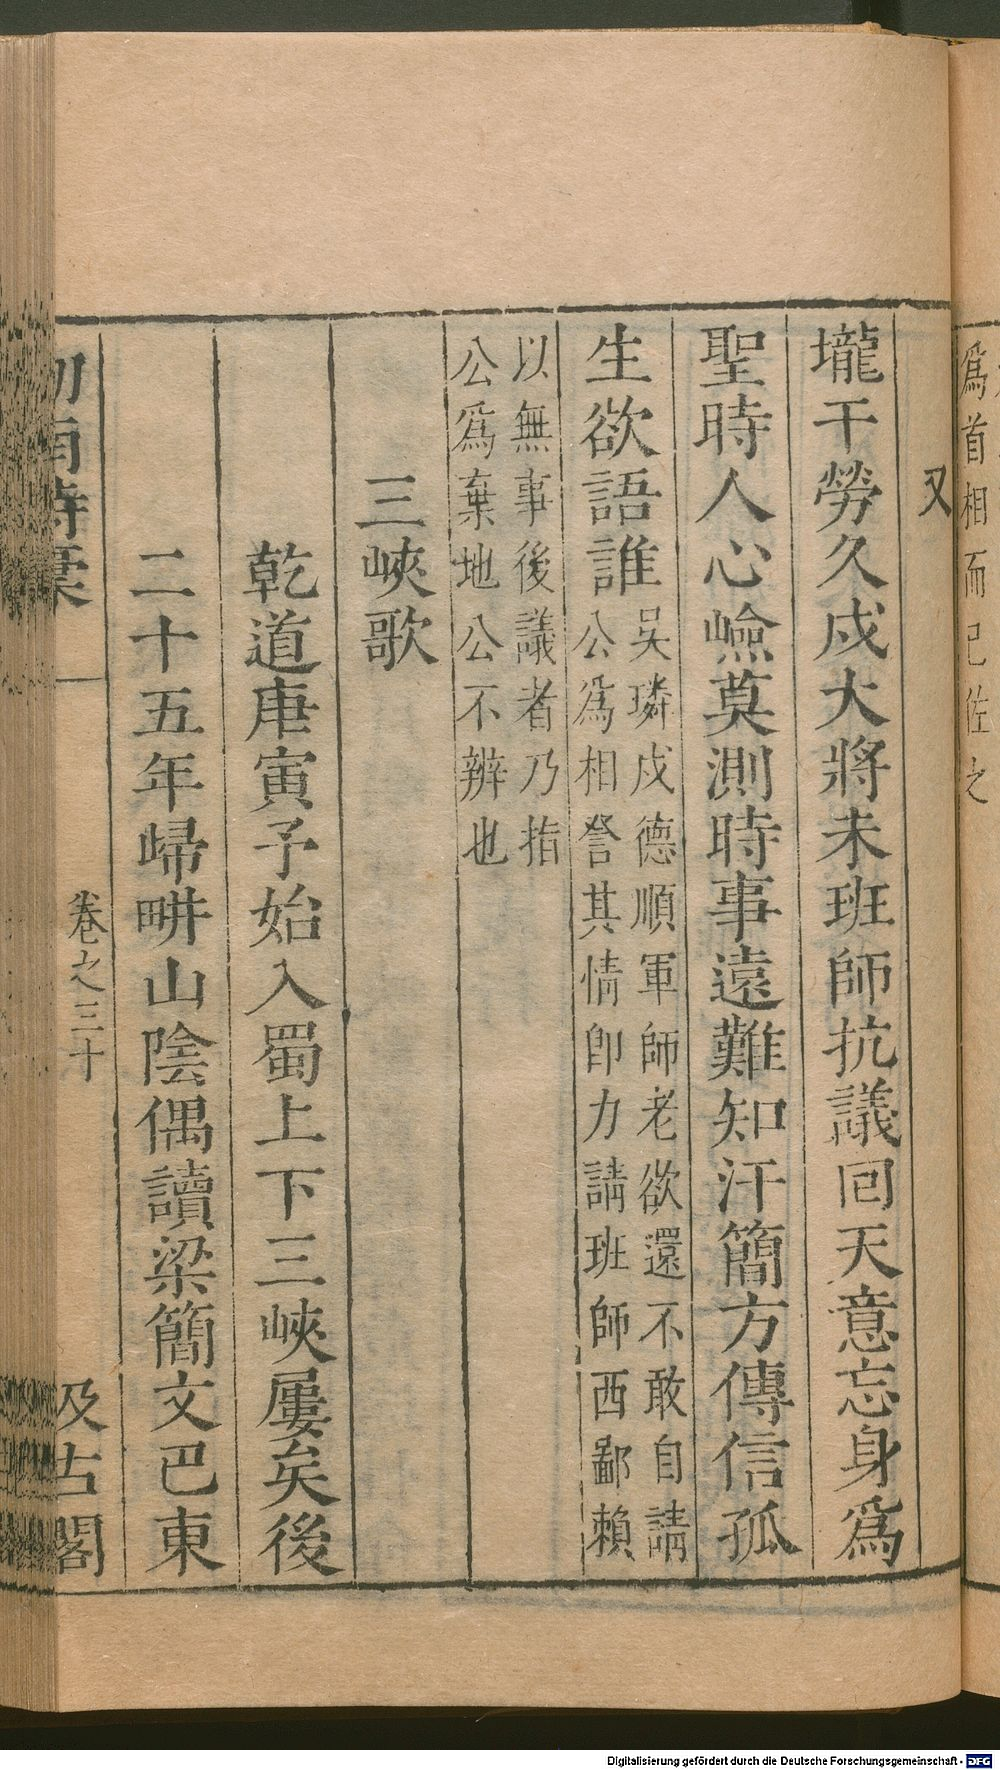 爲首相而已佐之
又
壠干勞久戍大將未班師抗議回天意忘身爲
聖時人心嶮莫測時事遠難知汗簡方傳信孤
生欲語誰吳璘戍德順軍師老欲還不敢自請
公爲相詧其情卽力請班師西鄙賴
以無事後議者乃指
公爲棄地公不辨也
三峽歌
乾道庚寅予始入蜀上下三峽屢矣後
二十五年歸畊山陰偶讀梁簡文巴東
劒南詩稾
卷之三十
及古閣
Digitalisierung gefördert durch die Deutsche Forschungsgemeinschaft - DFG